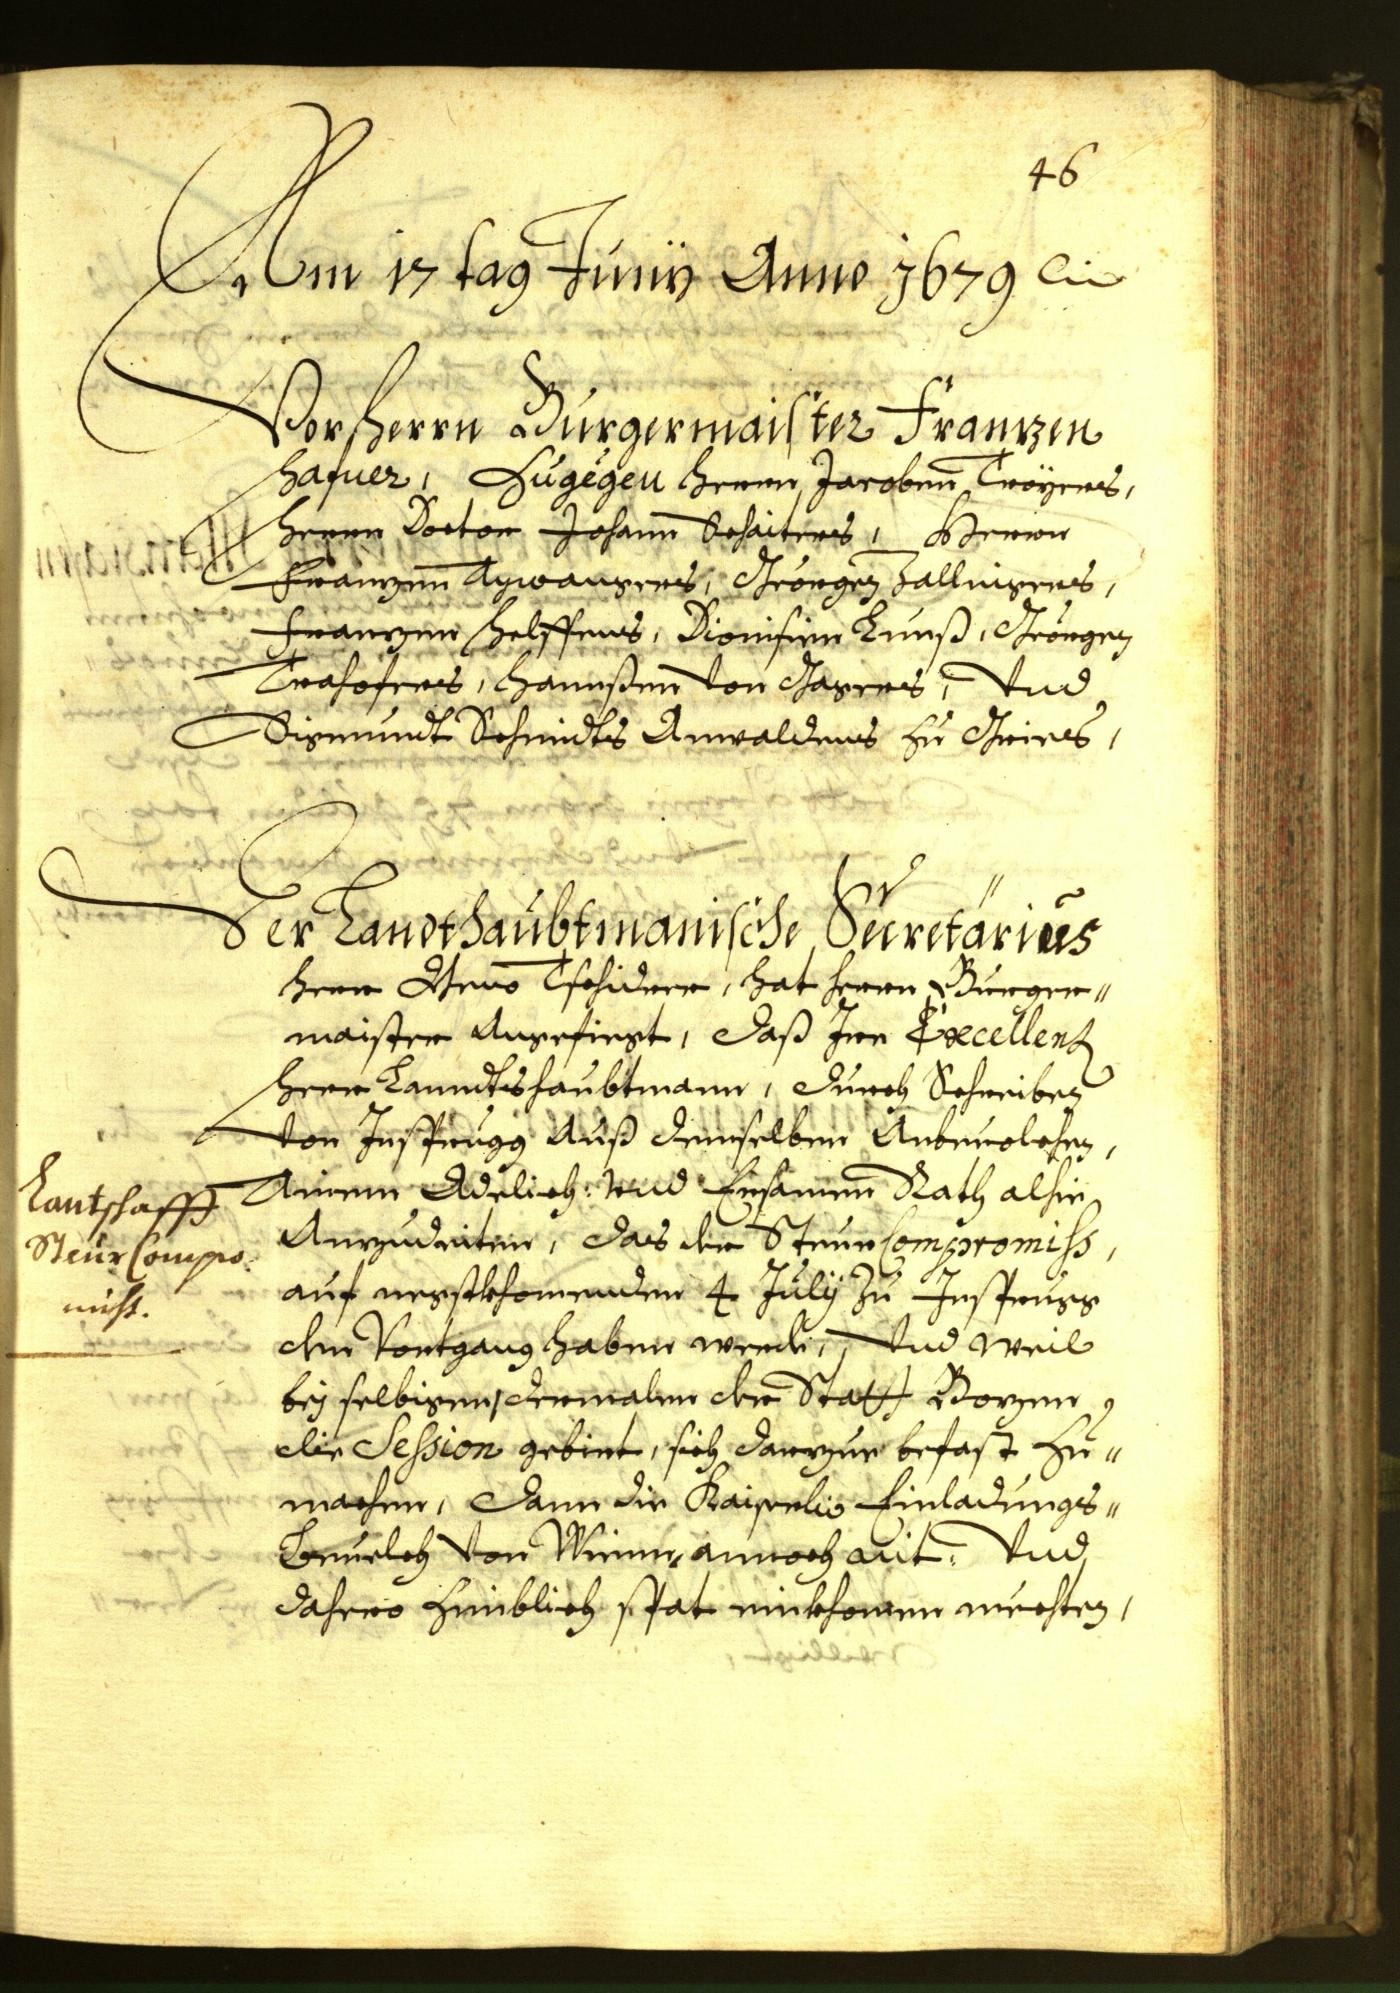 46
Am 17 tag Junij Anno 1679
Vor Herrn Burgermaister Franzen
Hafner, Zugegen Herrn Jacoben Troÿers,
Herrn Doctor Johann Schaiters, Herrn
Franzen Georgen Zallingers,
Franzen Dionisien Kunß, Georgen
Hannßen von und
Sigmundt Schmidts Anwaldens zu Gries,
Der Landthaubtmanische Secretarius
Herr Tschiderer, hat Herrn Burger-
maister Angefiegt, daß Ire Excellenz
Herr Lanndtshaubtmann, durch Schreiben
von Jnsprugg Auß demselben Anbevolchen,
Ainem Adelich: und Ersamen Rath alhie
Anzudeiten, das der Steur Compromiss,
auf negstkhomenden 4 Julij zu Jnsprugg
den Vortgang haben werde, Und weil
bej selbigem, dermalen der Statt Bozen
die Session gebirt, sich darzue befast zu-
machen, dann die Kaiserlich Einladungs-
von Wienn, annoch nit. Und
dahero spat einkhomen mechten,
Lantschafft
Steur Compro-
miss.